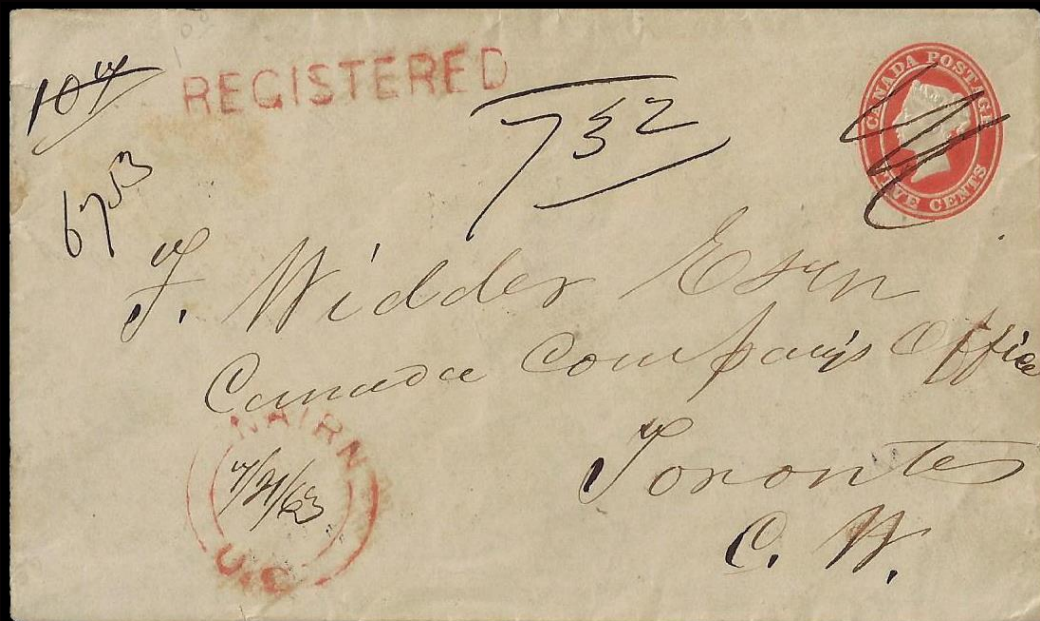 REGISTERED
104
732
6753
CANADA POSTAGE
FIVE CENTS
F. Widder Esqr
Canada Company's Office
Toronto
C. W.
NAIRN
7/21/63
U.C